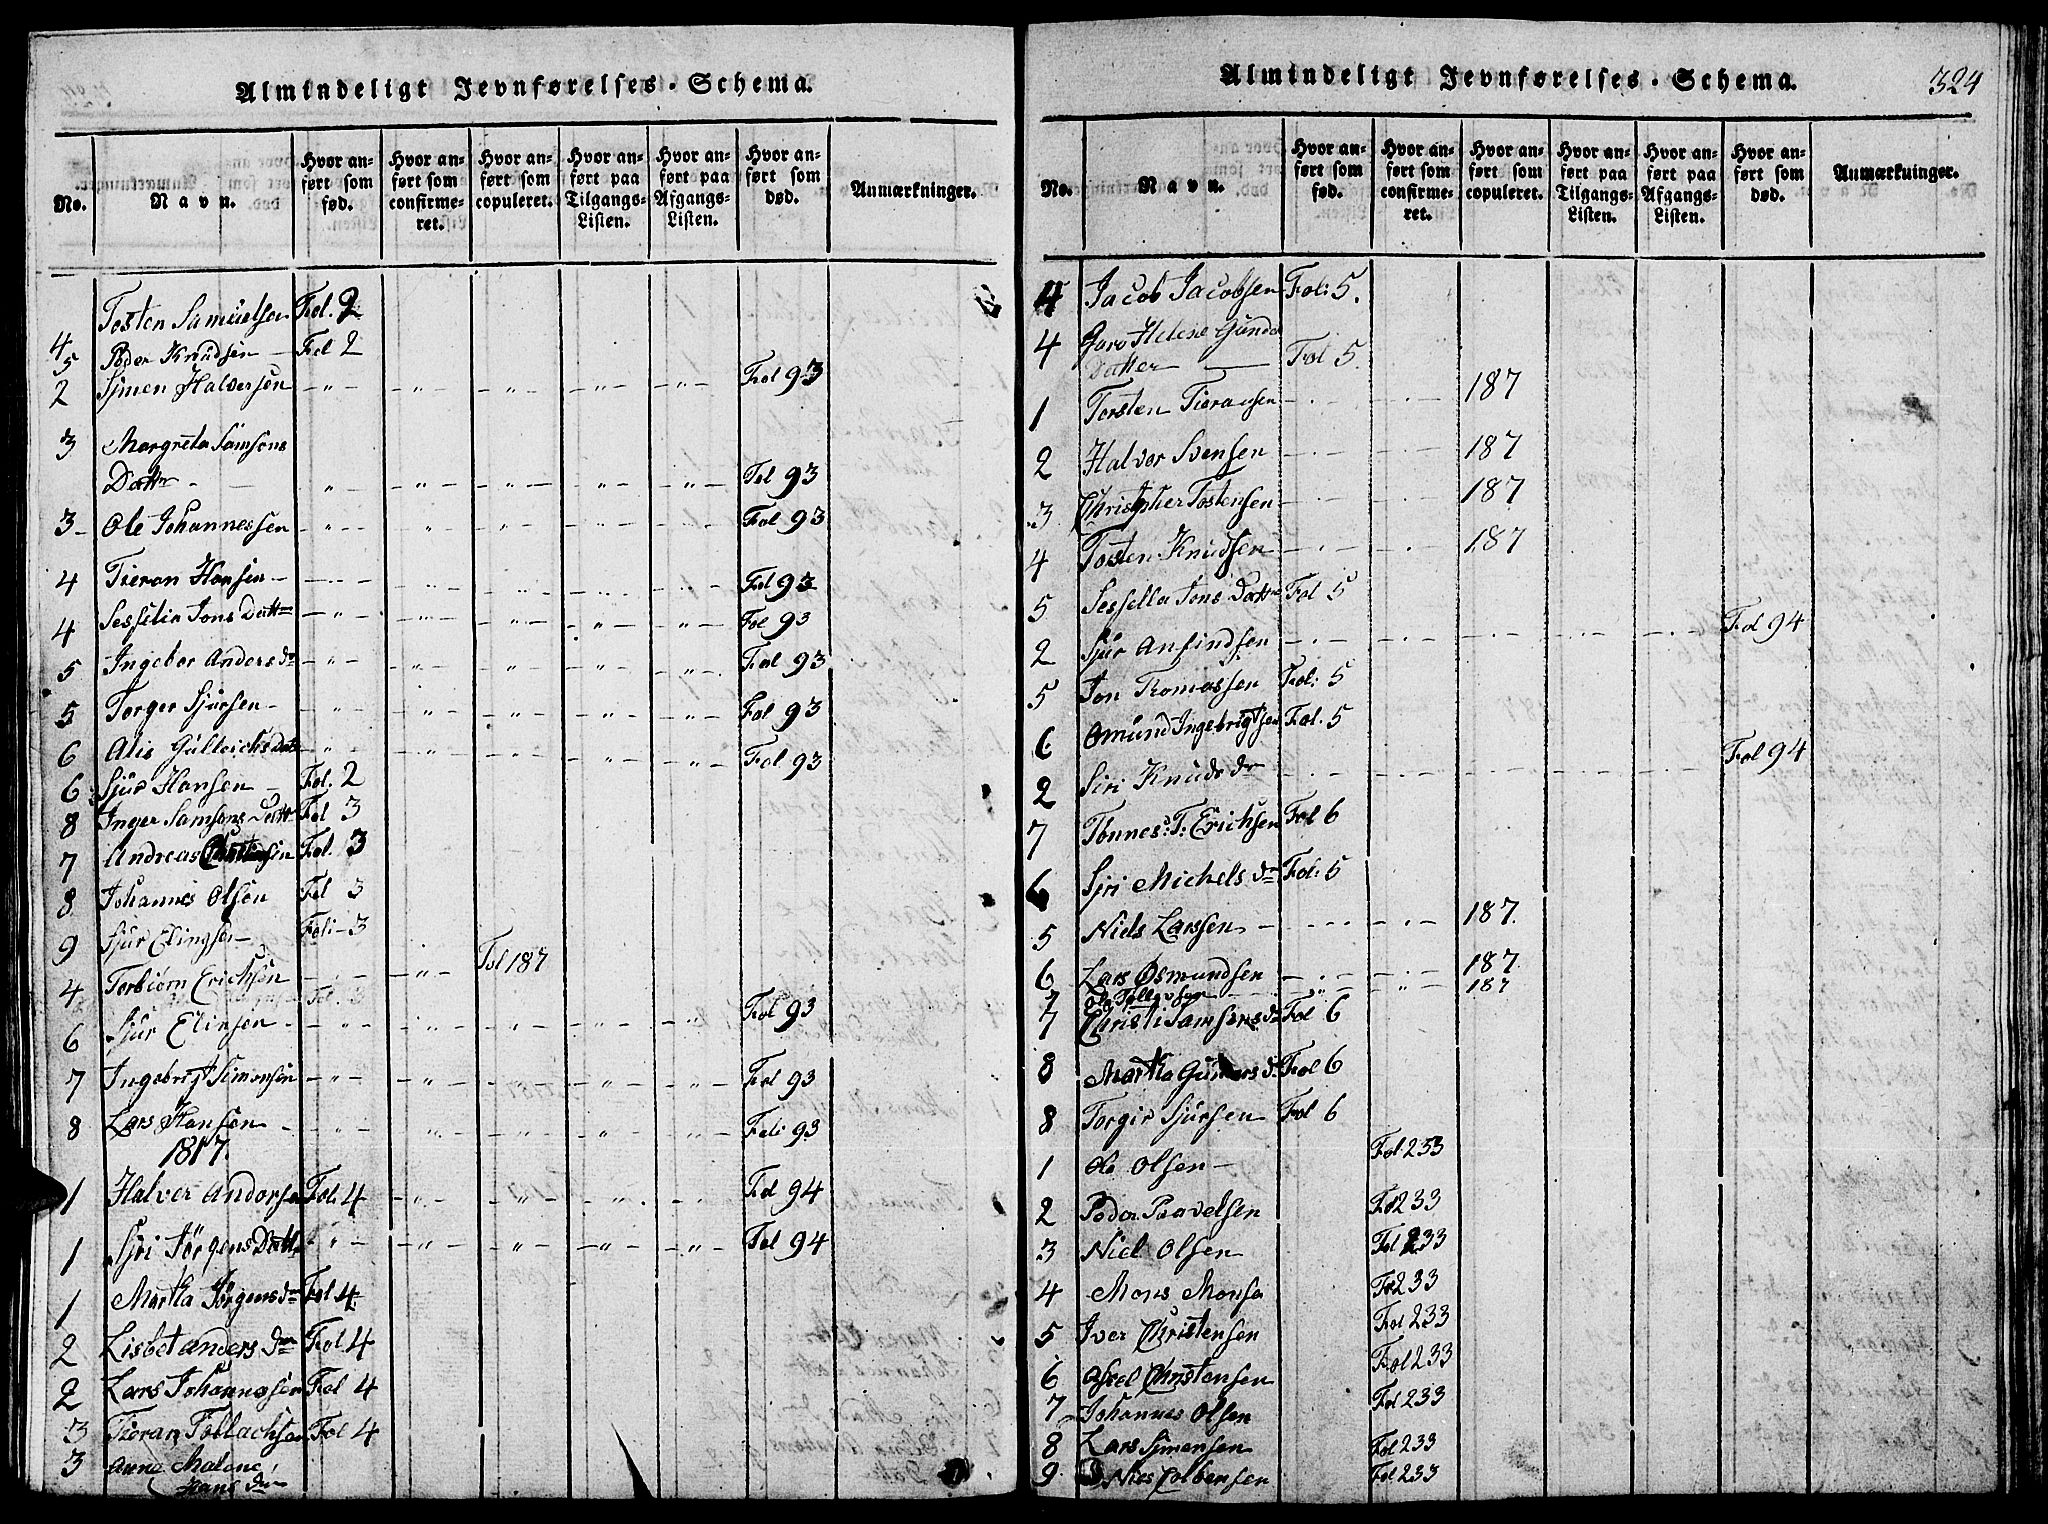 Almindeligt Jevnførelses-Schema.
No. | Navn. | Hvor anført som fød. | Hvor anført som confirmeret. | Hvor anført som copuleret. | Hvor anført paa Tilgangs-Listen. | Hvor anført paa Afgangs-Listen. | Hvor anført som død. | Anmærkninger.
4 Tosten Samuelsen Fol. 2
5 Peder Knudsen Fol 2
2 Simen Halversen Fol 93
3 Margreta Samsons
Datter Fol 93
3 Ole Johannessen Fol 93
4 Tieran Hansen Fol 93
4 Sessilia Jons Datter Fol 93
5 Ingebor Anders dr Fol 93
5 Torger Sjursen Fol 93
6 Alis Gulleichs Datr Fol 93
6 Sjur Hansen Fol. 2
8 Inger Samsons Dattr Fol 3
7 Andreas Fol. 3
8 Johannes Olsen Fol 3
9 Sjur Elingsen Fol: 3
4 Torbiörn Erichsen Fol 187
6 Sjur Elinsen Fol 93
7 Ingebrigt Simonsen Fol 93
8 Lars Hansen Fol: 93
1817.
1 Halver Andersen Fol: 4 Fol 94
1 Sjri Jörgens Dattr Fol 94
1 Martha Jörgens dr Fol 4
2 Lisbet anders dr Fol 4
2 Lars Johannesen Fol 4
3 Tieran Tollachsen Fol 4
3 Anne Malene
Hans dr
Almindeligt Jevnførelses-Schema. 324
No. | Navn. | Hvor anført som fød. | Hvor anført som confirmeret. | Hvor anført som copuleret. | Hvor anført paa Tilgangs-Listen. | Hvor anført paa Afgangs-Listen. | Hvor anført som død. | Anmærkninger.
4 Jacob Jacobsen Fol: 5.
4 Helene Gunder
Datter Fol 5.
1 Torsten Tieransen 187
2 Halvor Svensen 187
3 Christopher Tostensen 187
4 Tosten Knudsen 187
5 Sessella Jons Datter Fol 5
2 Sjur Anfindsen Fol 94
5 Jon Tomassen Fol: 5
6 Omund Ingebrigtsen Fol. 5
2 Siri Knuds dr Fol 94
7 Tönnes: T: Erichsen Fol 6
6 Sjri Michels dr Fol: 5
5 Niels Larssen 187.
6 Lars Osmundsen 187
7 Ole 187
7 Christi Samsons dr Fol 6
8 Martha dr Fol 6
8 Torgir Sjursen Fol 6
1 Ole Olsen Fol: 233
2 Peder Paavelsen Fol 233
3 Niel Olsen Fol 233
4 Mons Monsen Fol 233
5 Iver Christensen Fol 233
6 Christensen Fol 233
7 Johannes Olsen Fol 233
8 Lars Simensen Fol 233
9 Nies Colbensen Fol 233